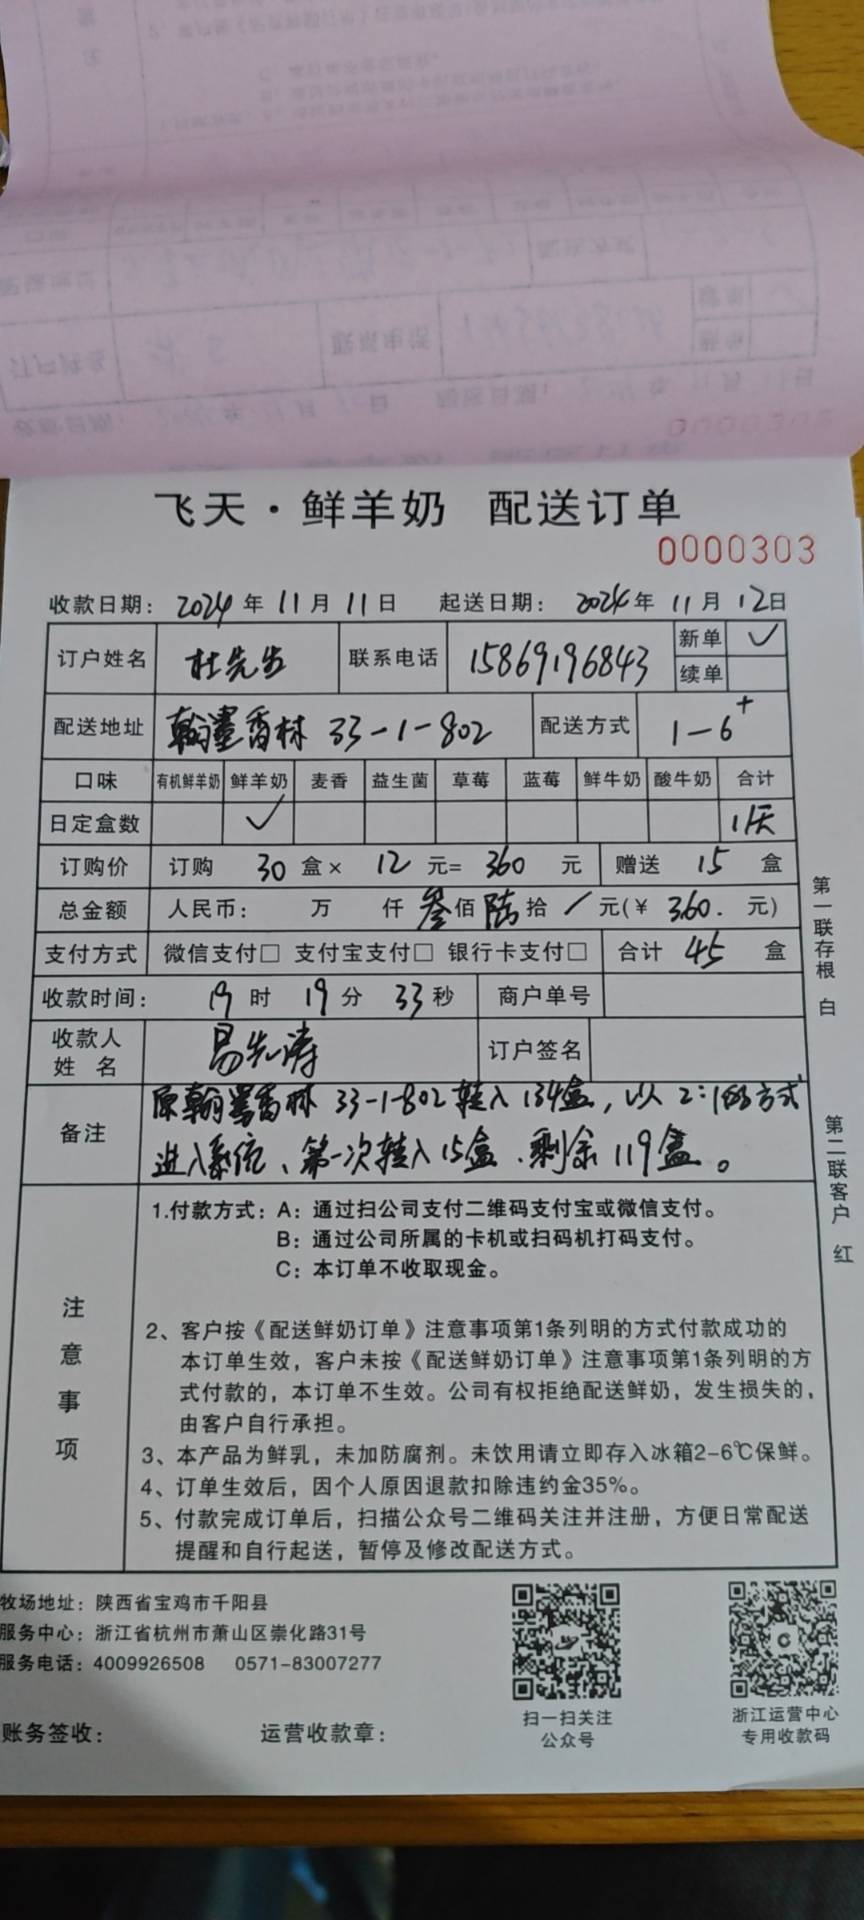 飞天·鲜羊奶 配送订单
0000303
收款日期： 2024 年 11 月 11 日 起送日期： 2024 年 11 月 12 日
订户姓名 杜先生 联系电话 15869196843 新单 ✓
续单
配送地址 翰墨香林 33-1-802 配送方式 1-6+
口味 有机鲜羊奶 鲜羊奶 麦香 益生菌 草莓 蓝莓 鲜牛奶 酸牛奶 合计
日定盒数 ✓ 1/天
订购价 订购 30 盒× 12 元= 360 元 赠送 15 盒
总金额 人民币： 万 仟 叁佰 陆拾 / 元(￥ 360. 元)
支付方式 微信支付□ 支付宝支付□ 银行卡支付□ 合计 45 盒
收款时间： 19 时 19 分 33 秒 商户单号
收款人姓名 易先涛 订户签名
备注 原翰墨香林 33-1-802 转入 134盒，以 2：1的方式
进入系统、第一次转入 15盒、剩余 119盒。
注意事项
1.付款方式：A：通过扫公司支付二维码支付宝或微信支付。
B：通过公司所属的卡机或扫码机打码支付。
C：本订单不收取现金。
2、客户按《配送鲜奶订单》注意事项第1条列明的方式付款成功的
本订单生效，客户未按《配送鲜奶订单》注意事项第1条列明的方
式付款的，本订单不生效。公司有权拒绝配送鲜奶，发生损失的，
由客户自行承担。
3、本产品为鲜乳，未加防腐剂。未饮用请立即存入冰箱2-6℃保鲜。
4、订单生效后，因个人原因退款扣除违约金35%。
5、付款完成订单后，扫描公众号二维码关注并注册，方便日常配送
提醒和自行起送，暂停及修改配送方式。
第一联存根 白
第二联客户 红
牧场地址：陕西省宝鸡市千阳县
服务中心：浙江省杭州市萧山区崇化路31号
服务电话：4009926508 0571-83007277
扫一扫关注
公众号
浙江运营中心
专用收款码
账务签收： 运营收款章：